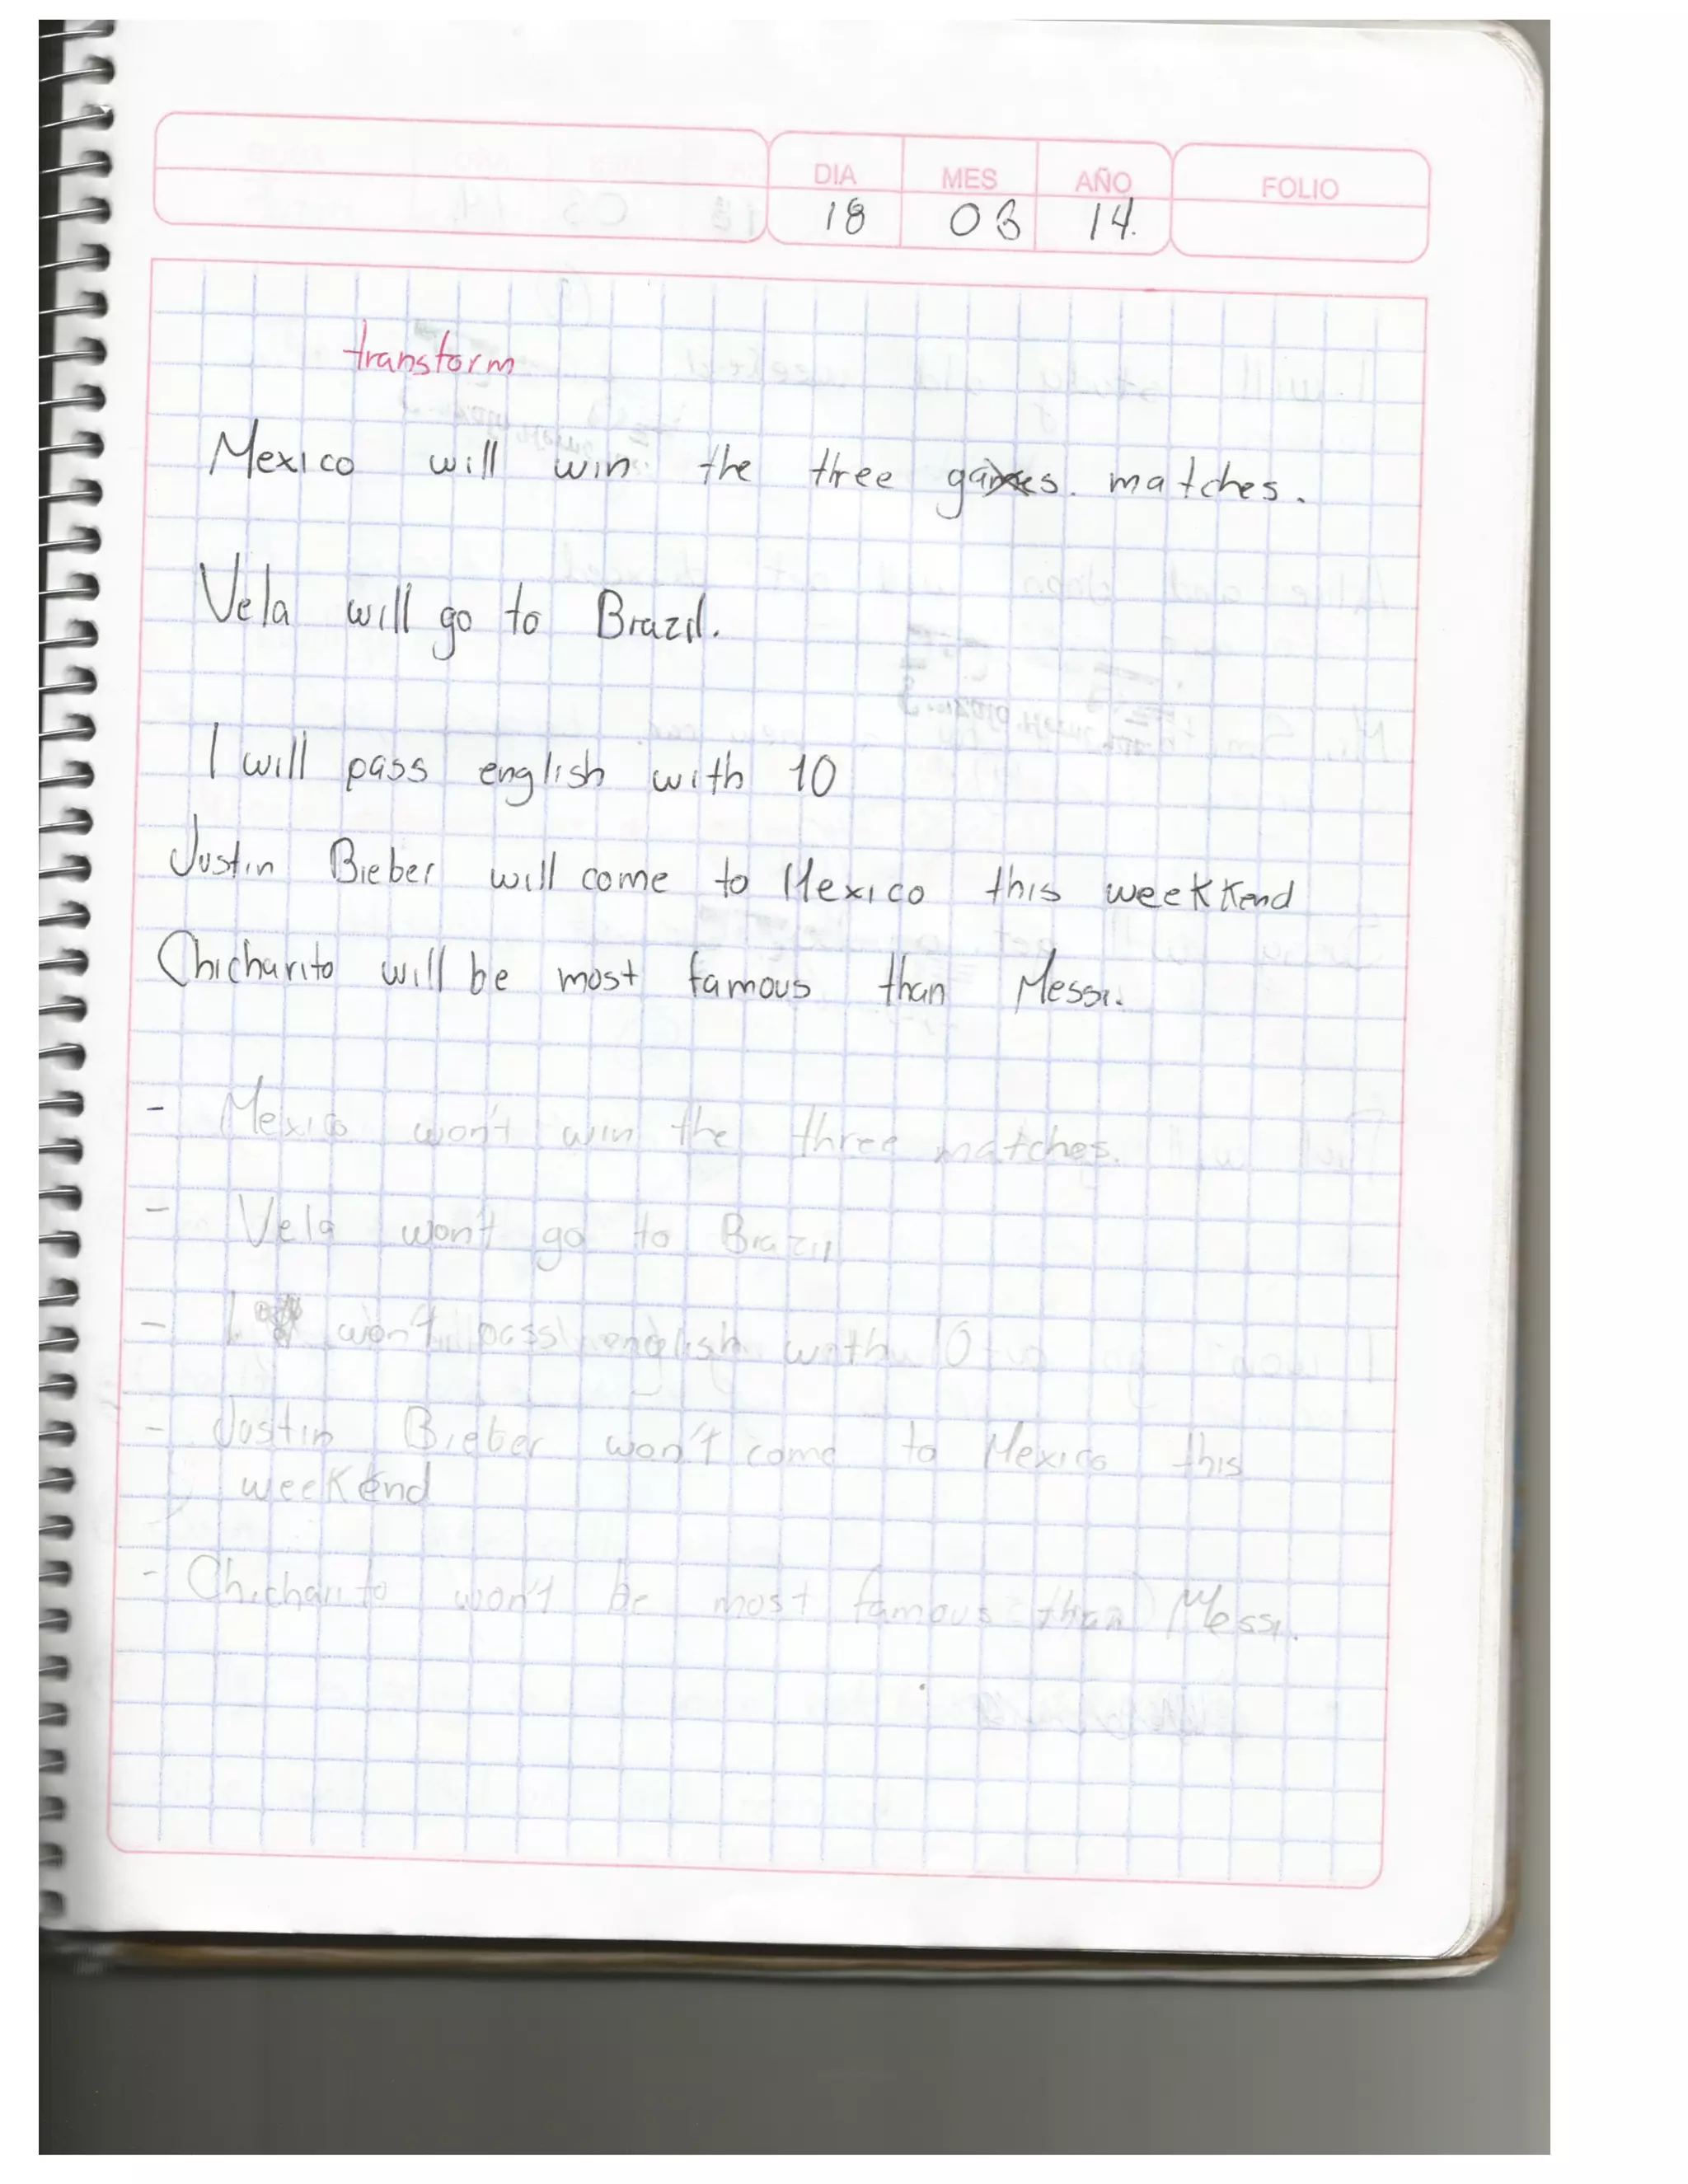 DIA MES AÑO FOLIO
18 03 14.
transform
Mexico will win the three games. matches.
Vela will go to Brazil.
I will pass english with 10
Justin Bieber will come to Mexico this weekkend
Chicharito will be most famous than Messi.
- Mexico won't win the three matches.
- Vela won't go to Brazil
- I won't pass english with 10
- Justin Bieber won't come to Mexico this
weekend
- Chicharito won't be most famous than Messi.